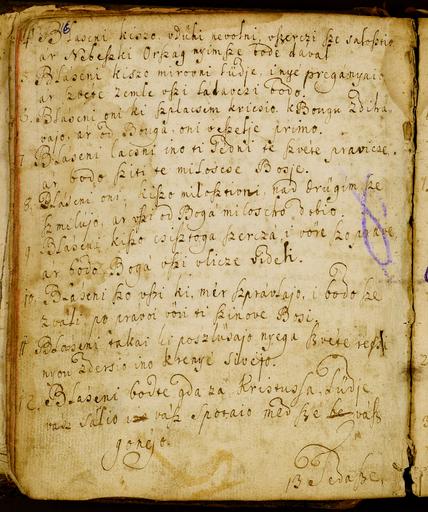 4 Blaseni kiszo, vduhi nevolni,
ar Nebeszki Orszag nyim sze bode daval
5 Blaseni kiszo mirovni lüdje, i nye preganyaio
ar szvete zemle vszi ladavczi bodo.
6. Blaseni oni ki szplacsem kricsio, k Bougu zdiha
vajo, ar od Bouga, oni veszelje primo.
7. Blaseni lacsni ino ti Fedni te szvéte pravicze
ar bodo sziti te milosese Bosje.
8. Blaseni oni, kiszo milosztivni, nad drügim sze
szmilujo, ar vszi od Boga miloscho dobio
9 Blaseni kiszo csisztoga szercza, i vöre
ar bodo Boga vszi vlicze videli.
10. Blaseni szo vszi ki, mér szpravlajo, i bodo sze
zvali, po pravoi vöri ti szinove Bosi.
11 Blaseni takai ki poszlüsajo nyega szvete
nyou zdersio ino k renyé sivéjo.
12. Blaseni bodte gda za Kristussa, lüdje
vasz salio vasz spotaio med sze vász
gonejo.